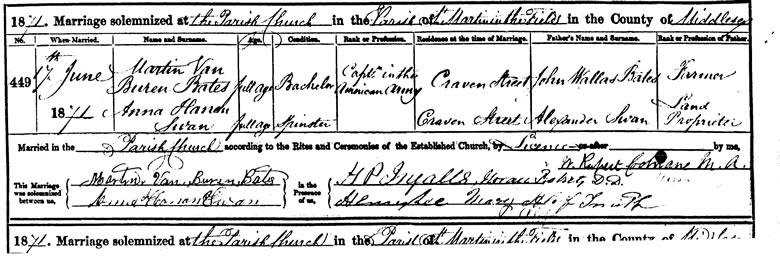 1871. Marriage solemnized at the Parish Church in the Parish of St Martin in the Fields in the County of Middlesex
No. When Married. Name and Surname. Age. Condition. Rank or Profession. Residence at the time of Marriage. Father's Name and Surname. Rank or Profession of Father.
449 17th June 1871 Martin Van Buren Bates full age Bachelor Captn in the American Army Craven Street John Wallas Bates Farmer
Anna Hanon Swan full age Spinster Craven Street Alexander Swan Land Proprietor
Married in the Parish Church according to the Rites and Ceremonies of the Established Church, by Licence or after by me,
W. Rupert Cochrane M.A.
This Marriage was solemnized between us, Martin Van Buren Bates in the Presence of us, H P Ingalls D.D.
Anna Hanon Swan Henry Lee Mary
1871. Marriage solemnized at the Parish Church in the Parish of St Martin in the Fields in the County of